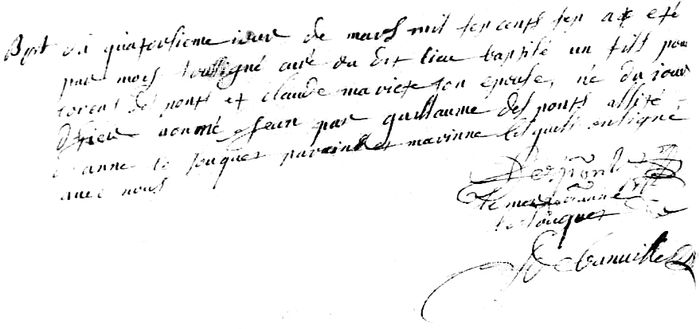 ce quatorsieme iour de mars mil sep cents sep a esté
par moy soussigné curé du dit lieu baptisé un fils pour
des ponts et claude mariete son epouse, né du jour
d'hier nommé Jean par guillaume des ponts assisté
d'anne le fouquet parain et marinne lesquels ont signé
avec nous
Desponts
anne
le fouquet